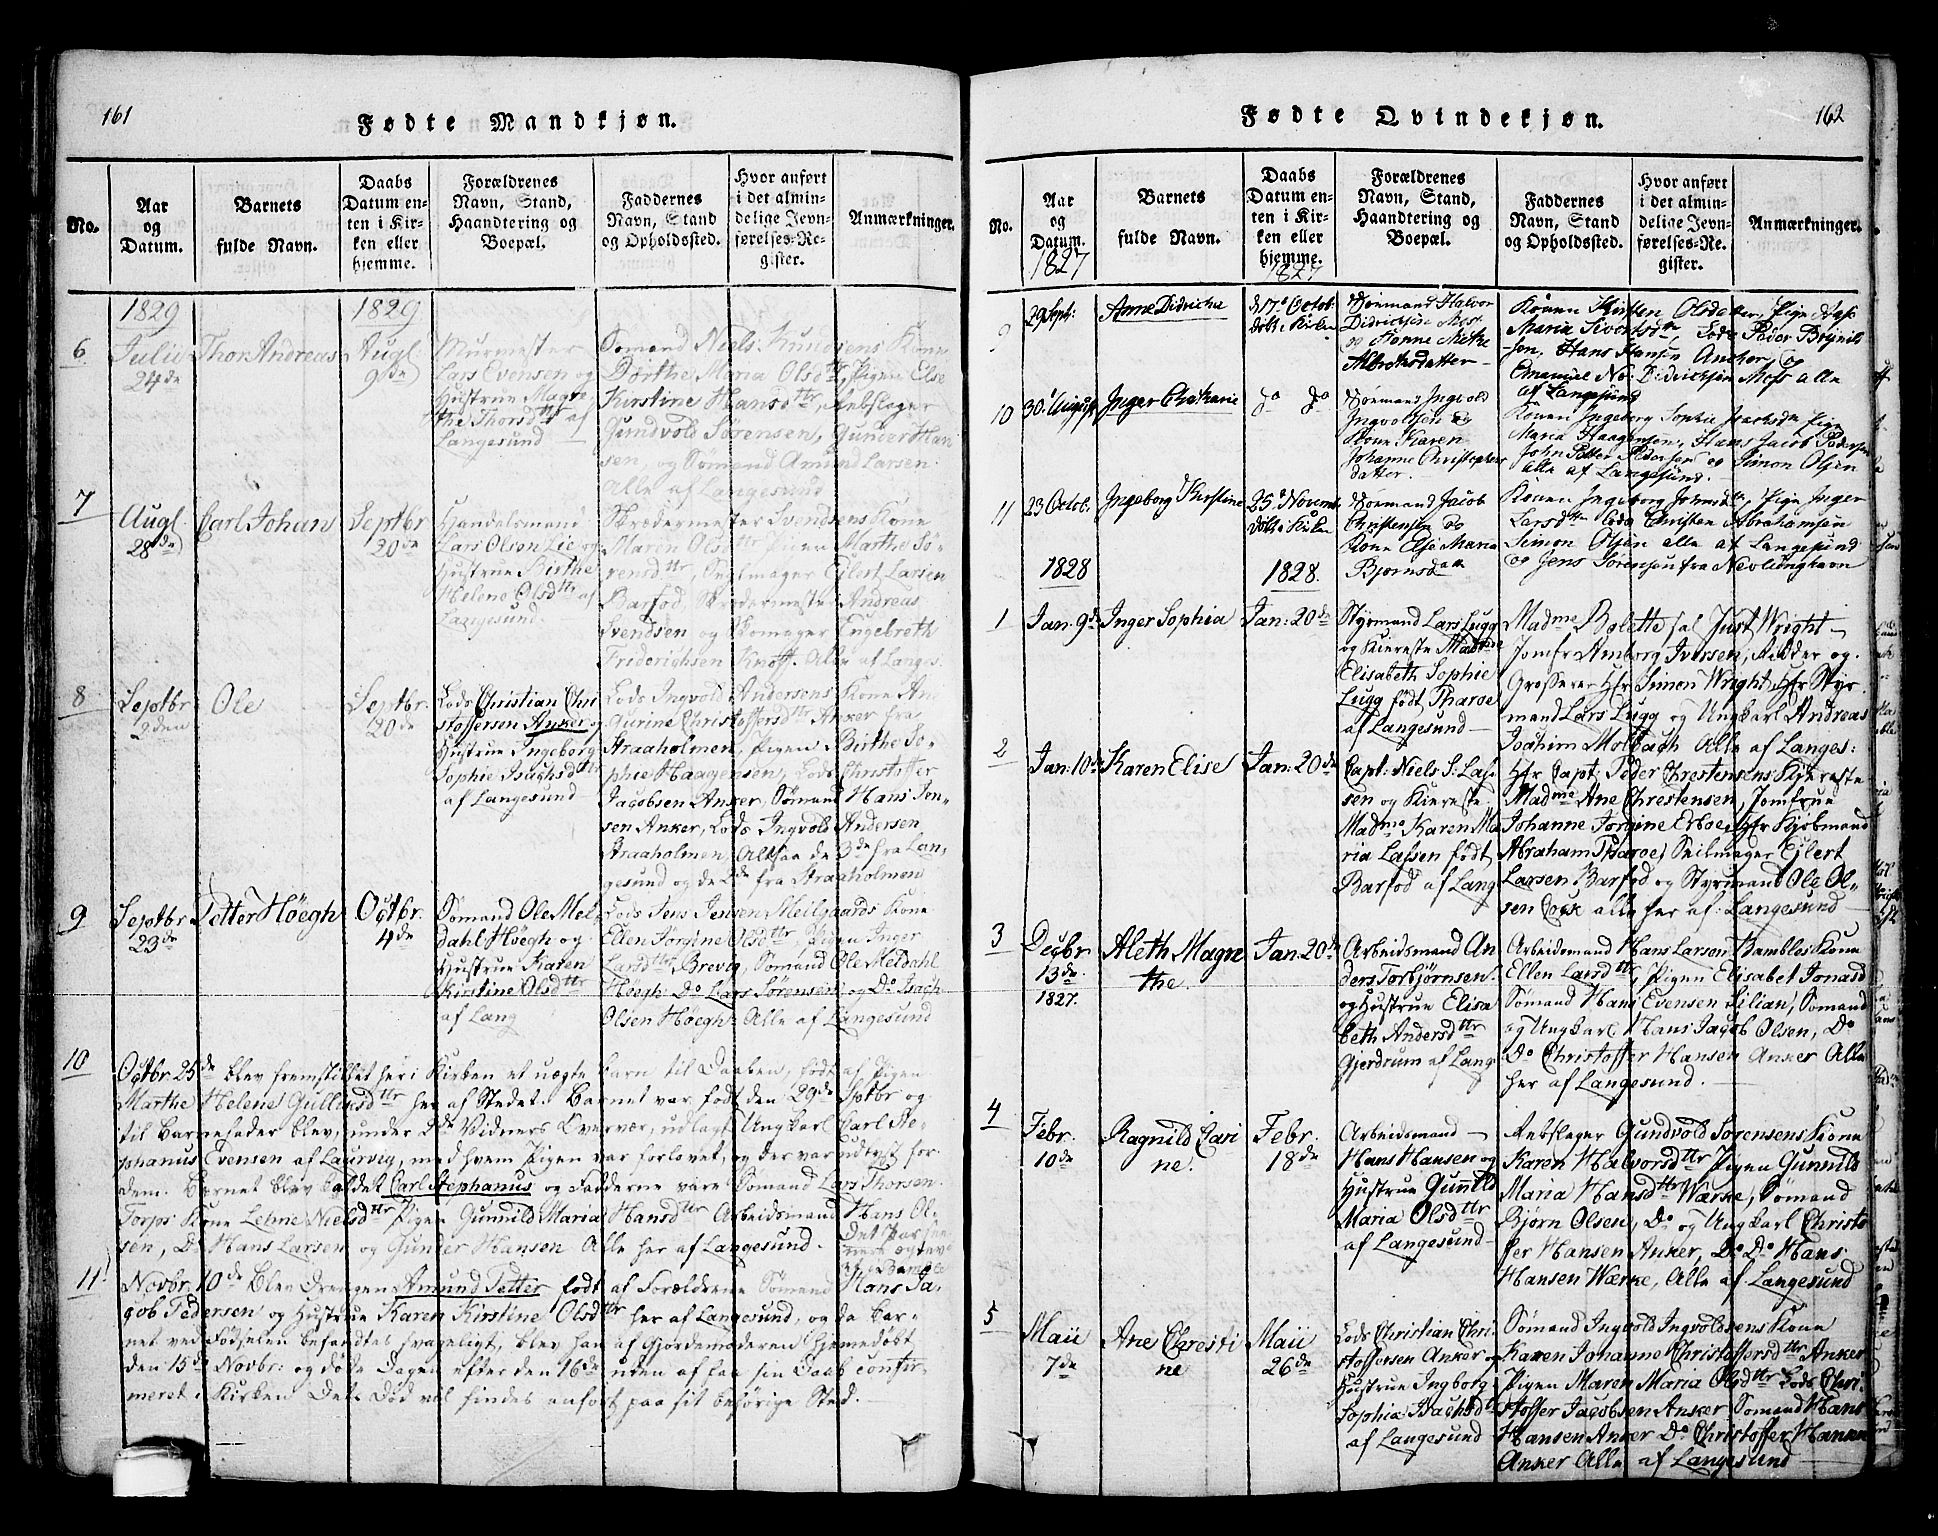 161
Fødte Mandkjøn.
No.
Aar og Datum.
Barnets fulde Navn.
Daabs Datum enten i Kirken eller hjemme.
Forældrenes Navn, Stand, Haandtering og Boepæl.
Faddernes Navn, Stand og Opholdssted.
Hvor anført i det almindelige Jevnførelses-Register.
Anmærkninger.
1829
1829
6
Julii
24de
Thor Andreas
Augl.
9de
Murmester
Lars Evensen og
Hustrue Magre
the Thorsdttr af
Langesund
Sømand Niels Knudsens Kone
Dorthe Maria Olsdttr, Pigen Else
Kirstine Hansdttr, Rebslager
Gundvold Sørensen, Gunder Han
sen, og Sømand Amund Larsen.
Alle af Langesund
7
Augl.
28de
Carl Johan
Septbr
20de
Handelsmand
Lars Olsen Lie og
Hustrue Birthe
Helene Olsdttr af
Langesund.
Skrædermester Svendsens Kone
Maren Olsdttr, Pigen Marthe Sø-
rensdttr, Seilmager Eilert Larsen
Barfod, Skrædermester Andreas
Svendsen og Skomager Engebreth
Friderichsen Knoff. Alle af Langes.
8
Septbr
2den
Ole
Septbr.
20de
Lods Christian Chri
stoffersen Anker og
Hustrue Ingeborg
Sophie Isachsdttr
af Langesund
Lods Ingvold Andersens Kone Ane
Gurine Christoffersdttr Anker fra
Straaholmen, Pigen Birthe So-
phie Haagensen, Lods Christoffer
Jacobsen Anker, Sømand Hans Jen-
sen Anker, Lods Ingvold Andersen
Straaholmen, Altsaa de 3de fra Lan-
gesund og de 2de fra Straaholmen
9
Septbr
23de
Petter Høegh
Octbr.
4de
Sømand Ole Mel-
dahl Høegh og
Hustrue Karen
Kirstine Olsdttr
af Lang
Lods Jens Jensen Meilgaards Kone
Ellen Jørgine Olsdttr, Pigen Inger
Larsdttr Brevig, Sømand Ole Meldahl
Høegh Do Lars Sørensen og Do Isach
Olsen Høegh. Alle af Langesund
10
Octbr 25de blev fremstillet her i Kirken et uægte barn til Daaben, født af Pigen
Marthe Helene Gullisdttr her af Stedet. Barnet var født den 29de Sptbr og
til Barnefader blev, under 2de Vidners Overvær, udlagt Ungkarl Carl Ste-
phanus Evensen af Laurvig, med hvem Pigen var forlovet, og der var udlyst for
dem. Barnet blev kaldet Carl Stephanus og Fadderne vare Sømand Lars Thorsen
Torps Kone Lehne Nielsdttr Pigen Gunnild Maria Hansdttr Arbeidsmand Hans Ol-
sen, Do Hans Larsen og Gunder Hansen Alle her af Langesund.
11
Novbr 10de Blev Drengen Amund Petter født af Forælderne Sømand Hans Ja-
cob Pedersen og Hustrue Karen Kirstine Olsdttr her af Langesund, og da bar-
net ved Fødselen befandtes svageligt, blev han af Gjordemoderen Hjemmedøbt
den 15de Novbr: og døde Dagen efter den 16de uden af faa sin Daab confir
meret i Kirken Dets Død vil findes anført paa sit behørige Sted.
162
Fødte Qvindekjøn.
No.
Aar og Datum.
Barnets fulde Navn.
Daabs Datum enten i Kirken eller hjemme.
Forældrenes Navn, Stand, Haandtering og Boepæl.
Faddernes Navn, Stand og Opholdssted.
Hvor anført i det almindelige Jevnførelses-Re. gister.
Anmærkninger.
1827
1827
9
29 Sept:
Anne Didricke
d 17de Octob:
døbt i Kirken
Sørmand Halvor
Didricksen Moss
og Konne Mette
Albretsdatter
Konen Kirsten Olsdatter, Pige Aase
Maria Sivortsdtr, Lods Peder Brynils
sen, Hans Hansen Ancker, og
Emanuel No. Didricksen Moss alle
af Langesund
10
30 August
Inger Cathrine
do do
Sørmand Ingvold
Ingvoldsen og
Kone Karen
Johanne Christophers
datter
Konen Ingeborg Sophie Isachsdtr Pige
Maria Haagensen, Hans Jacob Pedersen
John Petter Pedersen og Simon Olsen
alle af Langesund.
11
23 Octob:
Ingeborg Kirstine
25de Novemb
døbt i Kirken
Sørmand Jacob
Christensen og
Kone Else Maria
Bjornsdttr
Konen Ingeborg Johnsdttr, Pige Inger
Larsdttr Lods Christen Abrahamsen
Simon Olsen alle af Langesund
og Jens Sorensen fra Nevlunghavn
1828
1828.
1
Jan. 9de
Inger Sophia
Jan: 20de
Styrmand Lars Lugg
og Kiereste Madme
Elisabeth Sophie
Lugg født Tharoe
af Langesund
Madme Bolette sal Just Wright
Jomfr Amborg Iversen, Ridder og
Grosserer Hfr Simon Wright, Hfr Styr
mand Lars Lugg og Ungkarl Andreas
Joachim Molbach Alle af Langes:
2
Jan: 10de
Karen Elise
Jan: 20de
Capt: Niels S: Las-
sen og Kiereste
Madme Karen Ma
ria Lassen født
Barfod af Lang
Hfr Capt: Peder Chrestensens Kjereste
Madme Ane Chrestensen, Jomfrue
Johanne Jorgine Erboe, Hfr Kjøbmand
Abraham Tharoe, Seilmager Ejlert
Larsen Barfod og Styrmand Ole Ol-
sen Cock alle her af Langesund
3
Decbr
13de
1827.
Aleth Magre
the
Jan: 20de
Arbeidsmand An
ders Torbjørnsen
og Hustrue Elisa
beth Andersdttr
Gjerdrum af Lang
Arbeidsmand Hans Larsen Bambles Kone
Ellen Larsdttr, Pigen Elisabet Jonasd
Sømand Hans Evensen Silian, Sømand
og Ungkarl Hans Jacob Olsen, Do
Do Christoffer Hansen Anker Alle
her af Langesund.
4
Febr.
10de
Ragnild Cari
ne.
Febr.
18de
Arbeidsmand
Hans Hansen og
Hustrue Gunnild
Maria Olsdttr
af Langesund
Rebslager Gundvold Sorensens Kone
Karen Halvorsdttr Pigen Gunnild
Maria Hansdttr Wærke, Sømand
Bjørn Olsen, Do og Ungkarl Christo
fer Hansen Anker, Do Do Hans
Hansen Wærke, Alle af Langesund
5
Maii
7de
Ane Chresti
ne
Maii
26de
Lods Christian Chri-
stoffersen Anker og
Hustrue Ingborg
Sophia Isachsdtr
af Langesund
Sømand Ingvold Ingvoldsens Kone
Karen Johanne Christoffersdttr Anker
Pigen Maren Maria Olsdttr Lods Chri
stoffer Jacobsen Anker Sømand Hans
Hansen Anker Do Christoffer Hansen
Anker Alle af Langesund